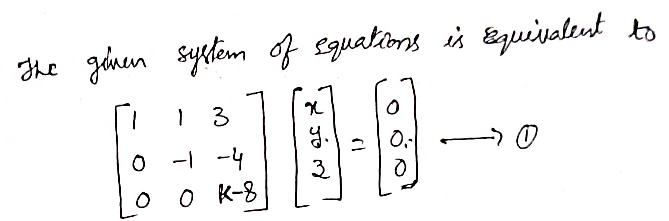 The given system of equations is equivalent to
[1 1 3] [x] [0]
[0 -1 -4] [y.] = [0.] → ①
[0 0 K-8] [z] [0]